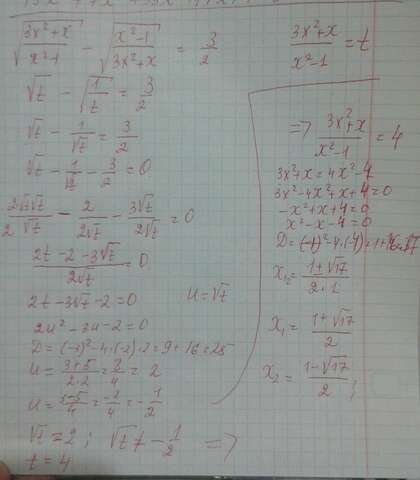 √((3x²+x)/(x²-1)) - √((x²-1)/(3x²+x)) = 3/2
√t - √(1/t) = 3/2
√t - 1/√t = 3/2
√t - 1/√t - 3/2 = 0
2√t√t/2√t - 2/2√t - 3√t/2√t = 0
(2t-2-3√t)/2√t = 0
2t-3√t-2=0 u=√t
2u²-3u-2=0
D=(-3)²-4·(-2)·2=9+16=25
u=(3+5)/(2·2)=8/4=2
u=(3-5)/4=-2/4=-1/2
√t=2; √t≠-1/2 =>
t=4
(3x²+x)/(x²-1)=t
=> (3x²+x)/(x²-1)=4
3x²+x=4x²-4
3x²-4x²+x+4=0
-x²+x+4=0
x²-x-4=0
D=(-1)²-4·(-4)=1+16=17
x₁,₂=(1±√17)/(2·1)
x₁=(1+√17)/2
x₂=(1-√17)/2;